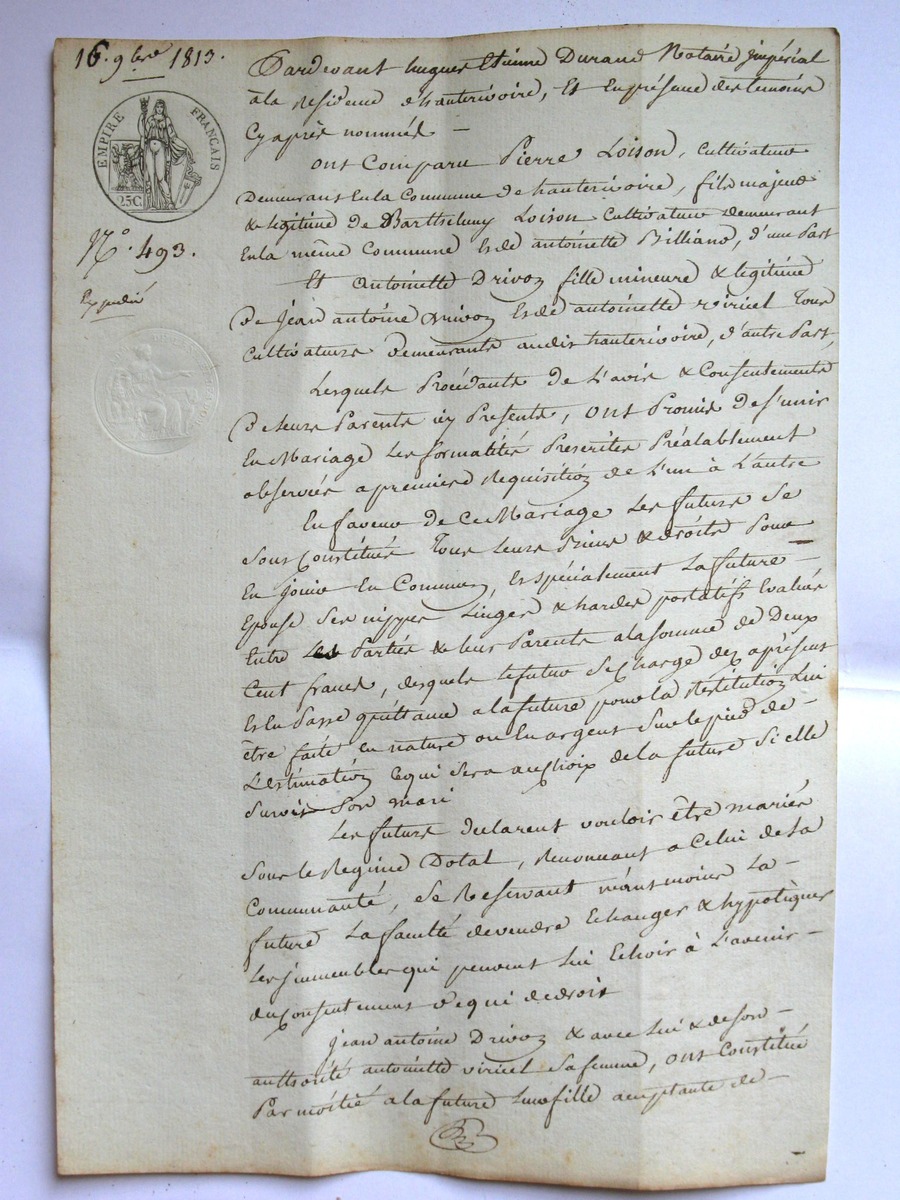 16. 9bre 1813.
EMPIRE FRANÇAIS
25C
N.° 493.
Expédié
Pardevant hugues Etienne Durand Notaire impérial
à la Residence d'hauterivoire, Et En présence des temoins
Cy après nommés —
ont Comparu Pierre Loison, Cultivateur
Demeurant En la Commune de hauterivoire, fils majeur
& legitime de Barthelemy Loison Cultivateur demeurant
En la même Commune Et de antoinette Billiand, d'une Part
Et Antoinette Drivoz fille mineure & legitime
De Jean antoine Drivoz Et de antoinette viricel Tous
Cultivateurs Demeurants audit hauterivoire, d'autre Part,
Lesquels Procédants De L'avis & Consentements
De Leurs Parents icy Presents, ont Promis De s'unir
En Mariage Les formalités Prescrites Préalablement
observées a premiere Requisition de L'un à L'autre
En faveur De Ce Mariage Les futurs Se
Sont Constitués Tous Leurs Biens & droits Pour
En jouir En Commun, Et spécialement La future —
Epouse Ses nippes Linges & hardes portatifs Evalués
Entre Les Parties & leur Parents a la somme de Deux
Cent francs, desquels le futur Se Charge dez apresent
Et En Passe quittance a la future pour la Restitution Lui
être faite En nature ou En argent Sur le pied de —
L'estimation Ce qui Sera au choix de la future Si elle
Survit Son mari
Les futurs declarent vouloir être mariés
Sous le Regime Dotal, Renonçant a Celui de La
Communauté, Se Reservant néansmoins La —
future La faculté de vendre Echanger & hypotèquer
Les jmmeubles qui peuvent Lui Echoir à L'avenir —
du Consentement De qui de droit
Jean antoine Drivoz & avec Lui & de Son —
authorité antoinette viricel Sa femme, ont Constitué
Par moitié a la future Leur fille acceptante de —